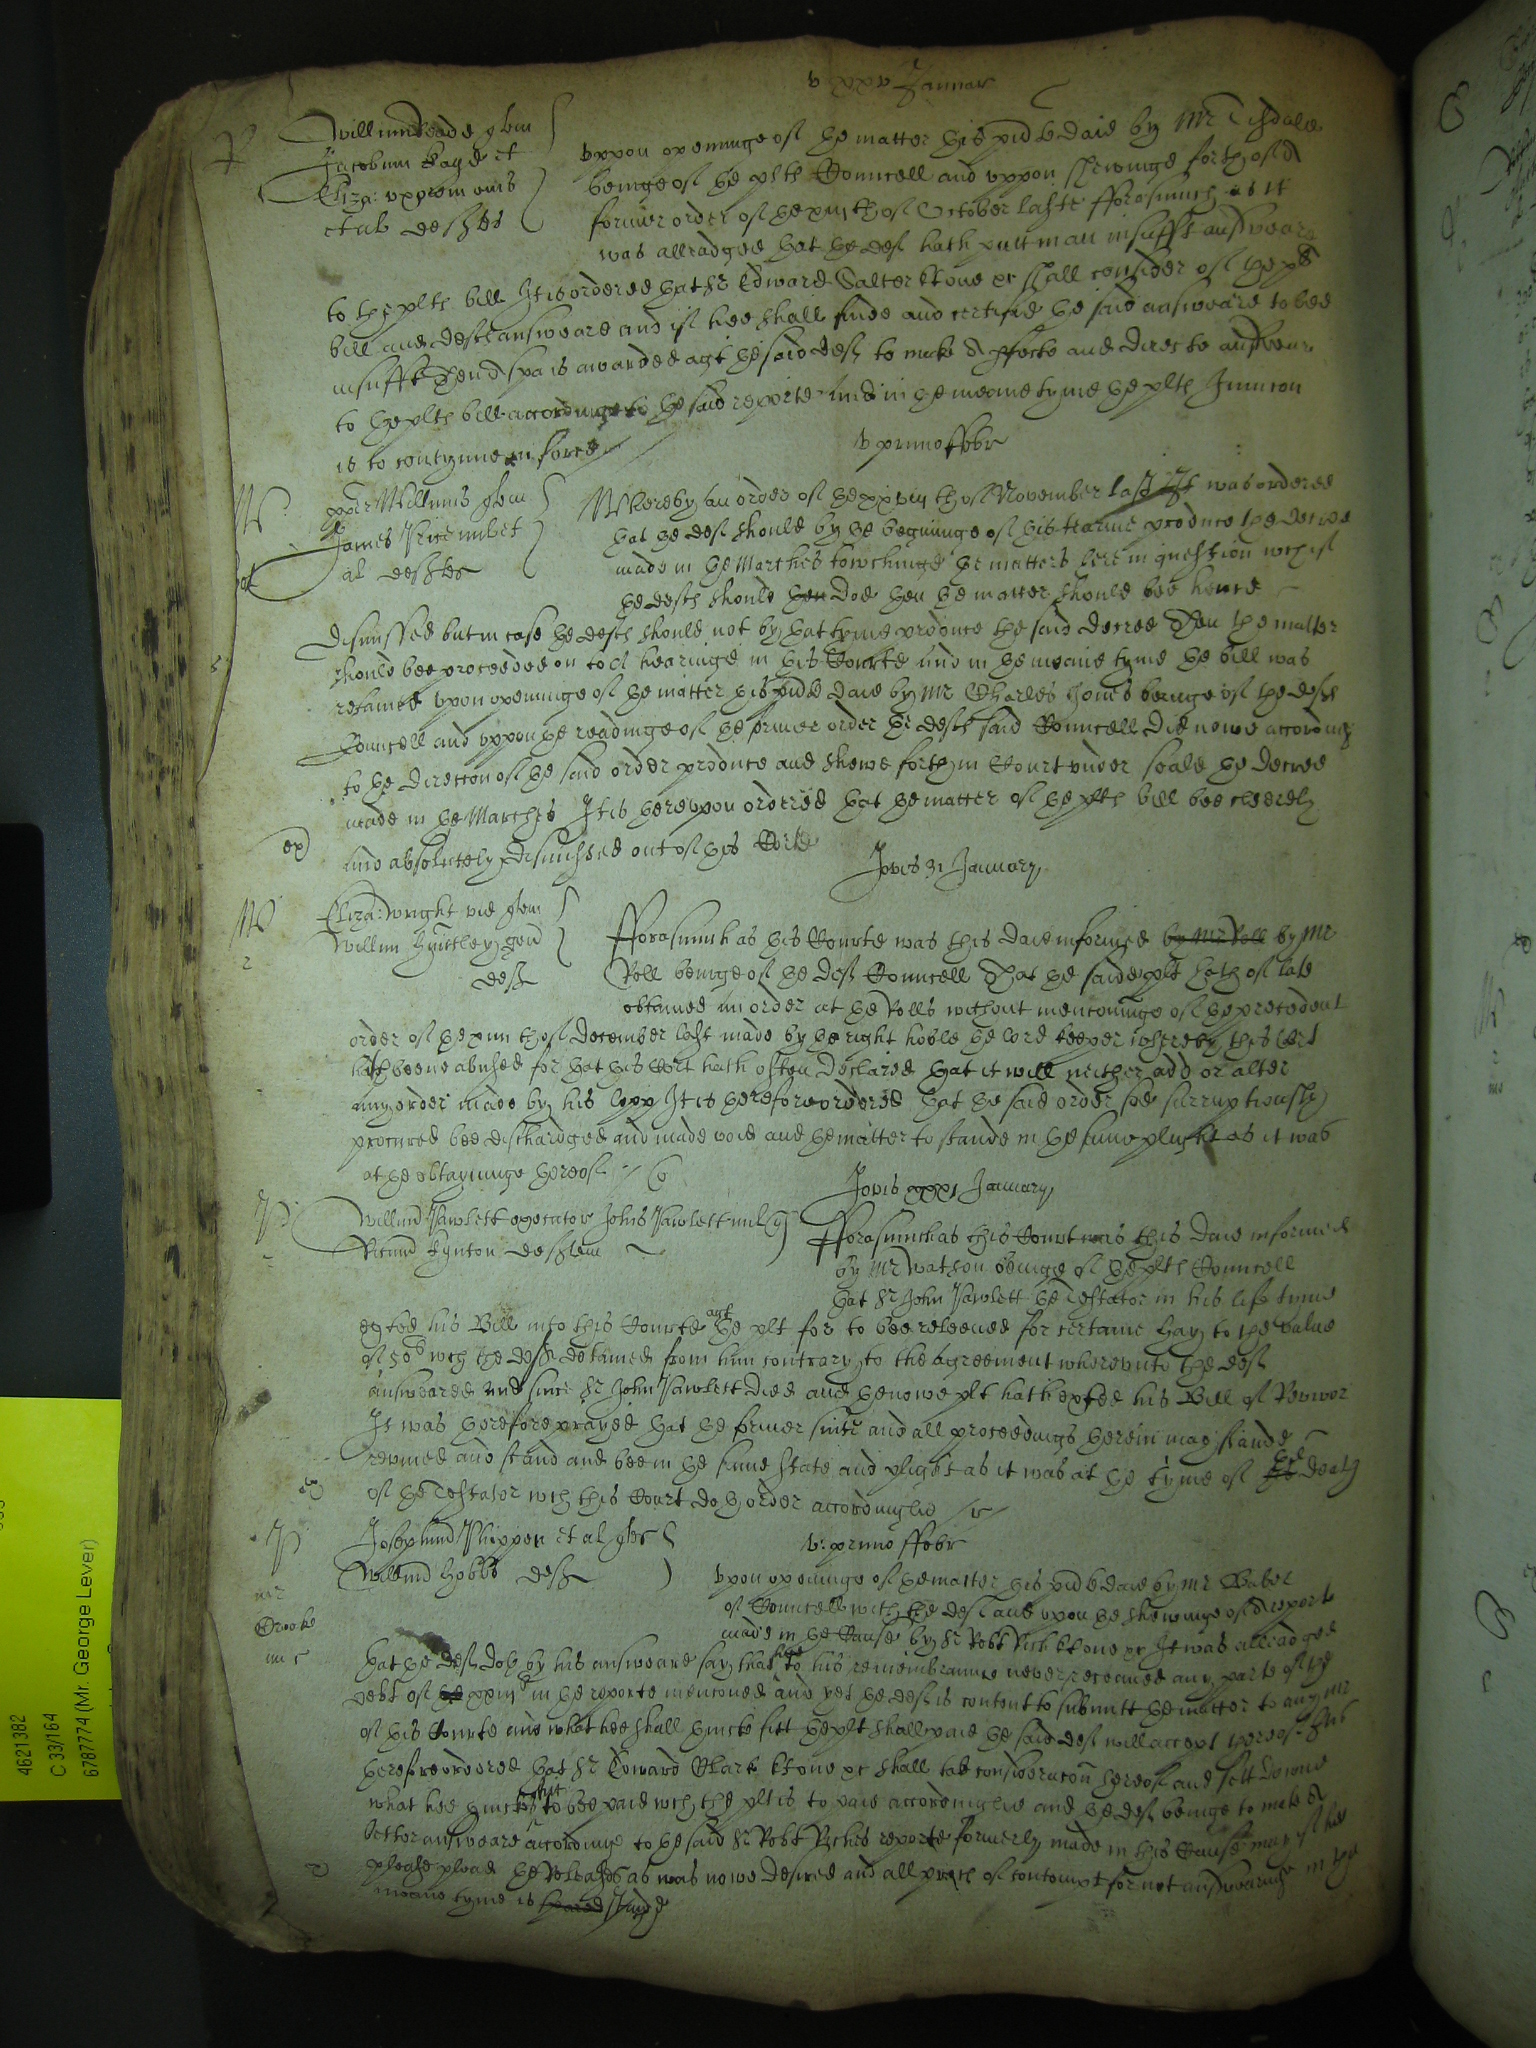 v xxv Januar
Willimus Reade quer
Jacobum Kaye et
Eliza: uxorem eius
et al deftes
Uppon openinge of the matter this pnte daie by Mr Tisdale
beinge of the plts Councell and uppon shewinge forth of a
former order of the xiijth of October laste fforasmuch as it
was alleadged that the deft hath putt in an insufft answeare
to the plts bill It is ordered that Sr Edward Salter kt one &c shall consider of the plts
bill and defts answeare and if hee shall finde and certifie the said answeare to bee
insufft then a spa is awarded agt the said deft to make a pfecte and directe answeare
to the plts bill accordinge to the said reporte And in the meane tyme the plts Iniunccon
is to contynue in force
v primo ffebr
Willims quer
James Price miles et
al defts
Whereby an order of the xxviijth of November last It was ordered
that the deft should by the begininge of this tearme produce the decree
made in the Marches towchinge the matters here in question wch if
the defts should then doe then the matter should bee hence
dismissed but in case the defts should not by that tyme produce the said decree Then the matter
should bee proceeded on to a hearinge in this Courte And in the meane tyme the bill was
retained upon openinge of the matter this pnte daie by Mr Charles Jones beinge of the defts
Councell and uppon the readinge of the former order the defts said Councell did nowe accordinge
to the direccon of the said order produce and shewe forth in Court under seale the decree
made in the Marches It is thereupon ordered that the matter of the plts bill bee cleerely
and absolutely dismissed out of this Corte
ex
Jovis 31 January
Eliza: Wright vid quer
Willm Huntley gen
deft
fforasmuch as this Courte was this daie informed by Mr Roll by Mr
Roll beinge of the defts Councell That the said plt hath of late
obtained an order at the Rolls without mencioninge of the precedent
order of the xiiijth of December last made by the right hoble the lord keeper whereby this Cort
hath beene abused for that this Cort hath often declared that it will neither add or alter
any order made by his lopp It is therefore ordered that the said order soe surruptiously
procured bee dischardged and made void and the matter to stande in the same plight as it was
at the obtayninge thereof
Jovis xxxi January
Willms Pawlett executor Johis Pawlett mil quer
Ricum Kynton deften
fforasmuch as this Court was this daie informed
by Mr Watson beinge of the plts Councell
that Sr John Pawlett the Testator in his life tyme
exhted his Bill into this Courte agt the plt for to bee releeved for certaine hay to the value
of 50l wch the deft detained from him contrary to the agreement whereunto the deft
answeared and since Sr John Pawlett died and the nowe plt hath exhted his Bill of Revivor
It was therefore prayed that the former suite and all proceedings therein may stande
revived and stand and bee in the same state and plight as it was at the tyme of the death
of the Testator wch this Court doth order accordinglie
ex
Josephus Phippen et al quer
Willms Hobbs deft
v: primo ffebr
Mr
Crooke
Upon openinge of the matter this pnte daie by Mr Baber
of Councell with the deft and upon the shewinge of a reporte
made in the Cause by Sr Robt Rich kt one &c It was alleadged
that the deft doth by his answeare say that hee to his remembrance never received any parte of the
debt of the xxiijl in the reporte mencioned and yet the deft is content to submitt the matter to any Mr
of this Courte and what hee shall thincke fitt the plt shall paie the said deft will accept thereof It is
therefore ordered that Sr Edward Clark kt one &c shall take consideracon thereof and sett downe
what hee thinckes fitt to bee paid wch the plt is to paie accordinglie and the deft beinge to make a
better answeare accordinge to the said Sr Robt Riches reporte formerly made in this Cause may if hee
please plead the Releases as was nowe desired and all proces of contempt for not answearinge in the
meane tyme is stayed
4621382
C 33/164
6787774 (Mr. George Lever)